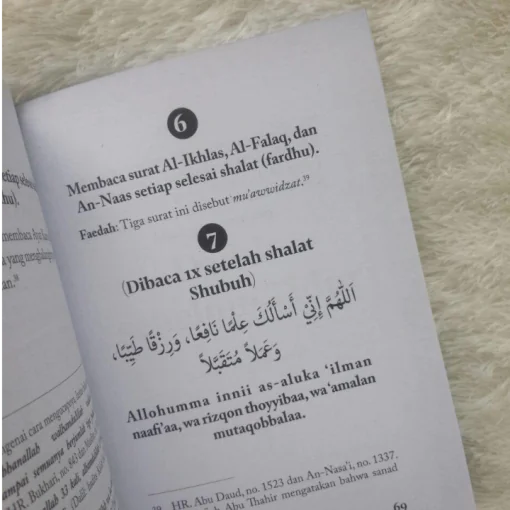 6
Membaca surat Al-Ikhlas, Al-Falaq, dan
An-Naas setiap selesai shalat (fardhu).
Faedah: Tiga surat ini disebut mu'awwidzat.³⁹
7
(Dibaca 1x setelah shalat
Shubuh)
اَللّٰهُمَّ إِنِّيْ أَسْأَلُكَ عِلْمًا نَافِعًا، وَرِزْقًا طَيِّبًا،
وَعَمَلاً مُتَقَبَّلاً
Allohumma innii as-aluka 'ilman
naafi'aa, wa rizqon thoyyibaa, wa 'amalan
mutaqobbalaa.
39 HR. Abu Daud, no. 1523 dan An-Nasa'i, no. 1337.
Abu Thahir mengatakan bahwa sanad
69
hu).
membaca
yang
an.³⁸
cara mengucapkan
HR. Bukhari, no. 843 dan
33 kali,